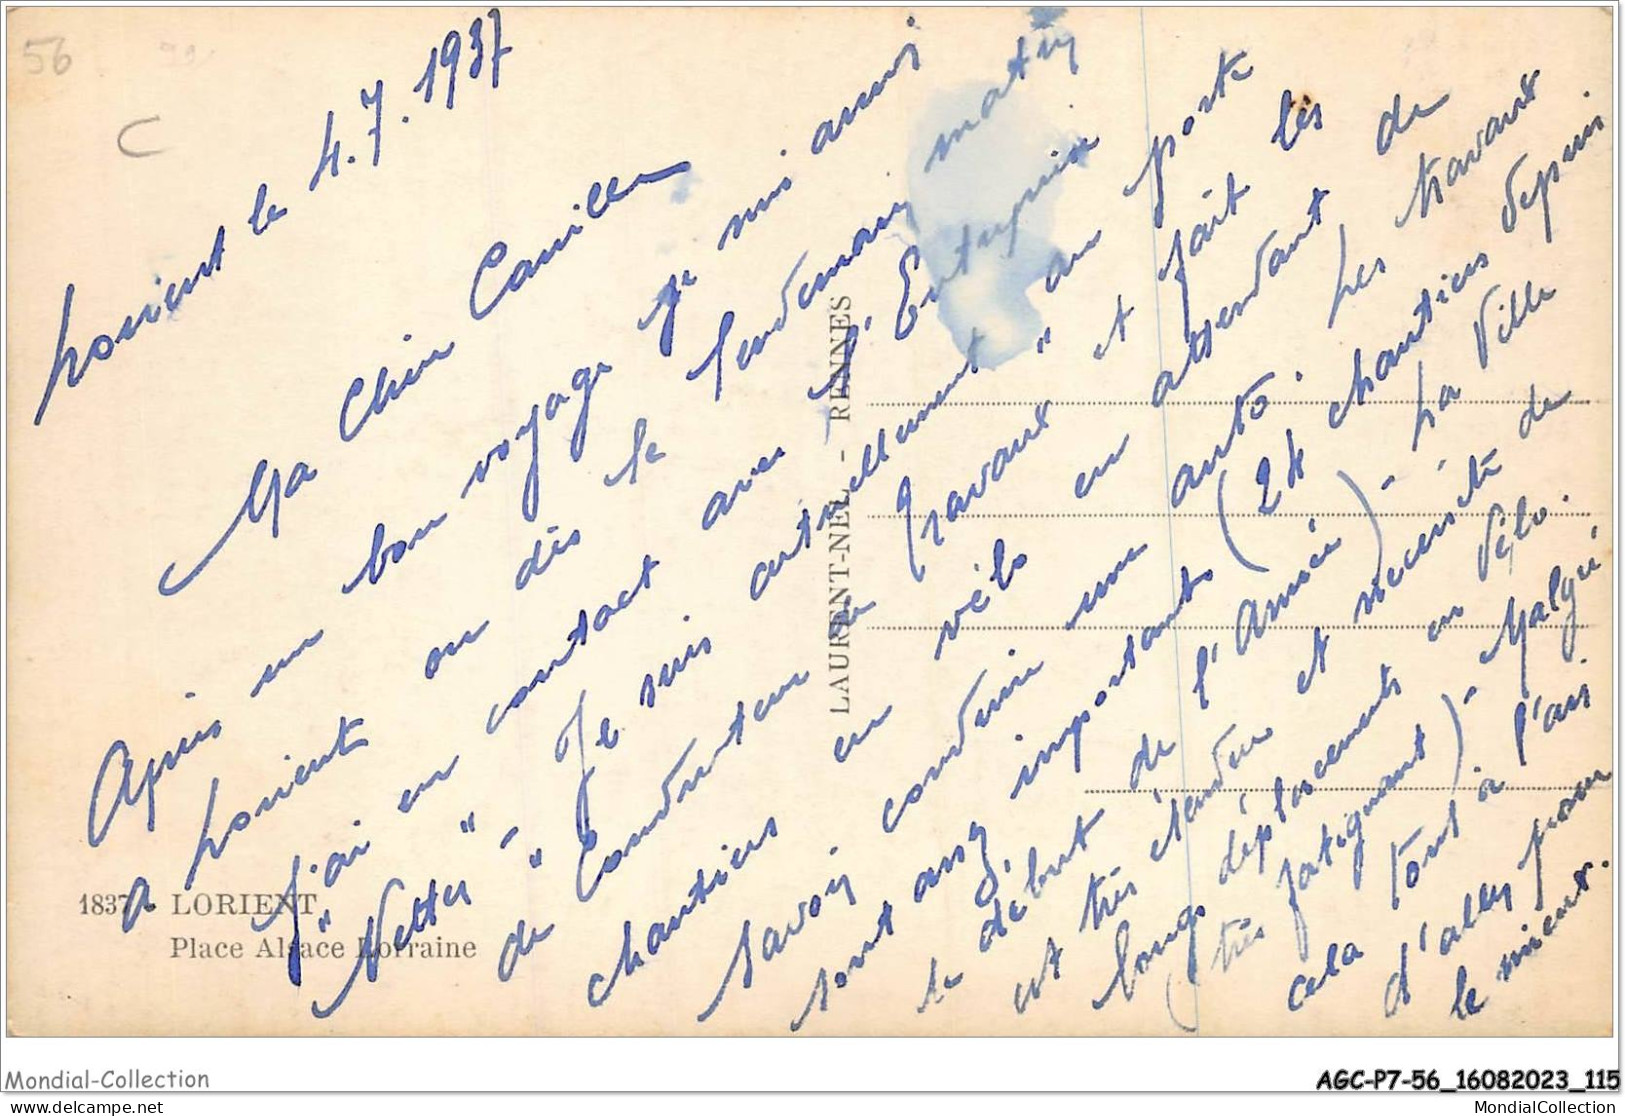 56
C
Lorient le 4.7.1937
Ma Chère Camille
Après un bon voyage je suis arrivé
à Lorient où dès le lendemain matin
j'ai en contact avec l'Entreprise
"Netter" - Je suis actuellement "au poste
de "Conducteur de Travaux et fait les
chantiers en vélo en attendant de
savoir conduire une auto. Les travaux
sont assez importants (24 chantiers depuis
le début de l'Année) - La Ville
est très étendue et nécessité de
longs déplacements en Vélo.
(très fatiguant) - Malgré
cela tout à l'air
d'aller pour
le mieux.
1837. - LORIENT
Place Alsace Lorraine
LAURENT-NEL - RENNES
Mondial-Collection
AGC-P7-56_16082023_115
delcampe.net
MondialCollection